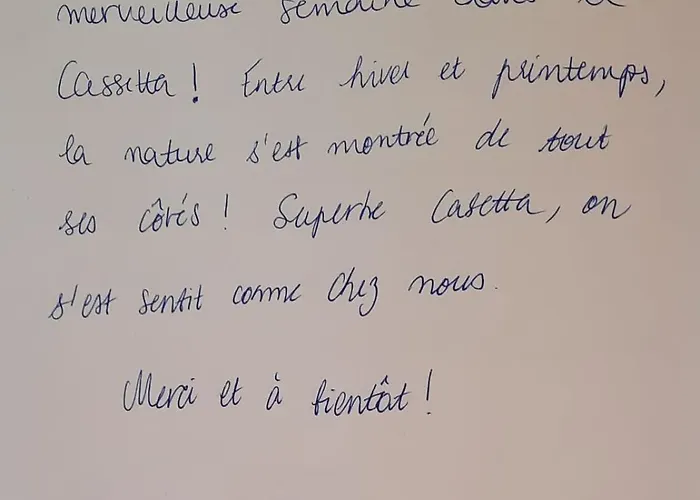 merveilleuse semaine dans la
Cassetta ! Entre hiver et printemps,
la nature s'est montrée de tout
ses côtés ! Superbe Casetta, on
s'est sentit comme chez nous.
Merci et à bientôt !